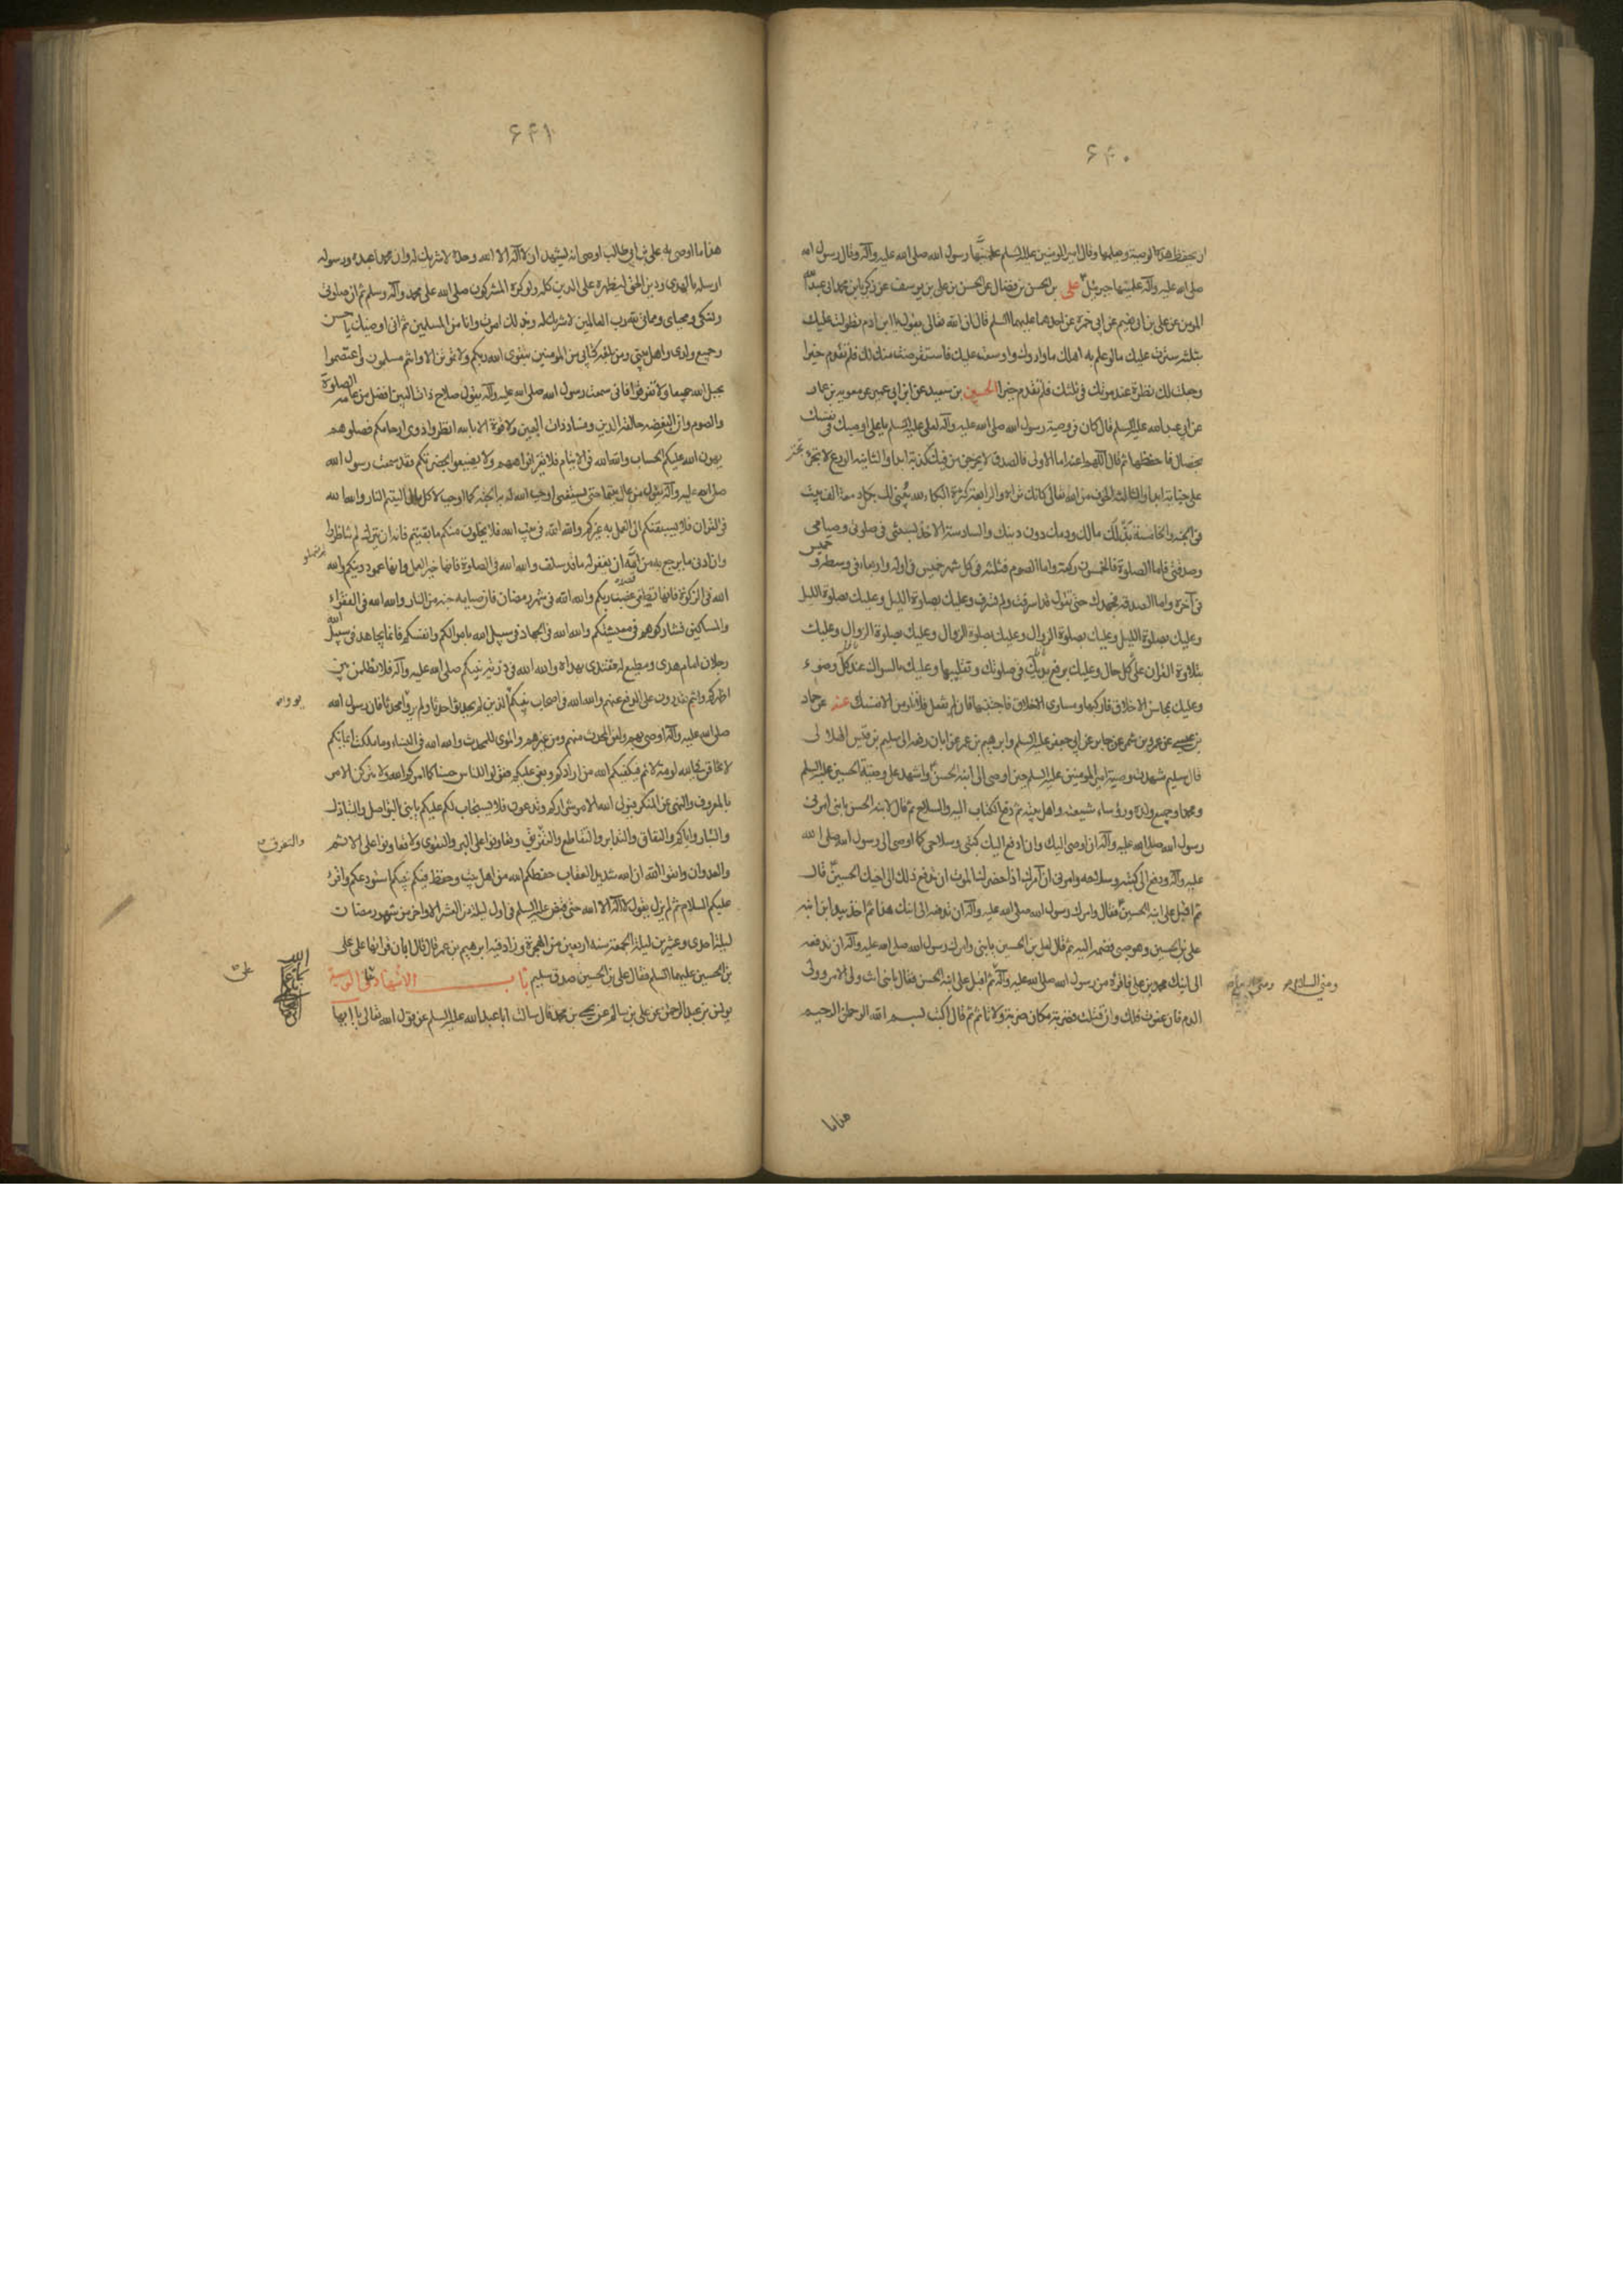 ۶۴۰
ان يحفظ هذه الوصية ويعلمها وقال امير المؤمنين عليه السلم علمنيها رسول الله صلى الله عليه وآله وقال رسول الله
صلى الله عليه وآله علمنيها جبرئيل على بن الحسن بن فضال عن الحسن بن على بن يوسف عن زكريا بن محمد ابى عبد الله
المومن عن على بن ابى نعيم عن ابى حمزة عن احدهما عليهما السلم قال ان الله تعالى يقول يا ابن ادم تطولت عليك
بثلثة سترت عليك مالو علم به اهلك ما واروك واوسعت عليك فاستقرضت منك لك فلم تقدم خيرا
وجعلت لك نظرة عند موتك فى ثلثك فلم تقدم خيرا الحسين بن سعيد عن ابن ابى عمير عن معوية بن عمار
عن ابى عبد الله عليه السلم قال كان فى وصية رسول الله صلى الله عليه وآله لعلى عليه السلم يا على اوصيك فى نفسك
بخصال فاحفظها ثم قال اللهم اعنه اما الاولى فالصدق لا يخرجن من فيك كذبة ابدا والثانية الورع لا تجتر
على خيانة ابدا والثالثة الخوف من الله تعالى كانك تراه والرابعة كثرة البكاء لله يبنى لك بكل دمعة الف بيت
فى الجنة والخامسة بذلك مالك ودمك دون دينك والسادسة الاخذ بسنتى فى صلوتى وصيامى
وصدقتى فاما الصلوة فالخمسون ركعة واما الصوم فثلثة فى كل شهر خميس فى اوله واربعاء فى وسطه وخميس
فى آخره واما الصدقة فجهدك حتى تقول قد اسرفت ولم تسرف وعليك بصلوة الليل وعليك بصلوة الليل
وعليك بصلوة الليل وعليك بصلوة الزوال وعليك بصلوة الزوال وعليك بصلوة الزوال وعليك
بتلاوة القران على كل حال وعليك برفع يديك فى صلوتك وتقليبها وعليك بالسواك عند كل وضوء
وعليك بمحاسن الاخلاق فاركبها ومساوى الاخلاق فاجتنبها فان لم تفعل فلا تلومن الا نفسك عنه عن حماد
بن عيسى عن عمرو بن شمر عن جابر عن ابى جعفر عليه السلم وابرهيم بن عمر عن ابان رفعه الى سليم بن قيس الهلالى
قال سليم شهدت وصية امير المؤمنين عليه السلم حين اوصى الى ابنه الحسن واشهد على وصيته الحسين عليه السلم
ومحمدا وجميع ولده ورؤساء شيعته واهل بيته ثم دفع الكتاب اليه والسلاح ثم قال لابنه الحسن يا بنى امرنى
رسول الله صلى الله عليه وآله ان اوصى اليك وان ادفع اليك كتبى وسلاحى كما اوصى الى رسول الله صلى الله
عليه وآله ودفع الى كتبه وسلاحه وامرنى ان آمرك اذا حضرك الموت ان تدفع ذلك الى اخيك الحسين قال
ثم اقبل على ابنه الحسين فقال وامرك رسول الله صلى الله عليه وآله ان تدفعه الى ابنك هذا ثم اخذ بيد ابن ابنه
على بن الحسين وهو صبى فضمه اليه ثم قال لعلى بن الحسين يا بنى وامرك رسول الله صلى الله عليه وآله ان تدفعه
الى ابنك محمد بن على فاقرئه من رسول الله صلى الله عليه وآله ثم اقبل على ابنه الحسن فقال يا بنى انت ولى الامر وولى
ومنى السلام
الدم فان عفوت فلك وان قتلت فضربة مكان ضربة ولا تاثم ثم قال اكتب بسم الله الرحمن الرحيم
هذا ما
۶۴۱
هذا ما اوصى به على بن ابى طالب اوصى انه يشهد ان لا اله الا الله وحده لا شريك له وان محمدا عبده ورسوله
ارسله بالهدى ودين الحق ليظهره على الدين كله ولو كره المشركون صلى الله على محمد وآله وسلم ثم ان صلوتى
ونسكى ومحياى ومماتى لله رب العالمين لا شريك له وبذلك امرت وانا من المسلمين ثم انى اوصيك يا حسن
وجميع ولدى واهل بيتى ومن بلغه كتابى من المؤمنين بتقوى الله ربكم ولا تموتن الا وانتم مسلمون واعتصموا
بحبل الله جميعا ولا تفرقوا فانى سمعت رسول الله صلى الله عليه وآله يقول صلاح ذات البين افضل من عامة الصلوة
والصوم وان البغضة حالقة الدين وفساد ذات البين ولا قوة الا بالله انظروا ذوى ارحامكم فصلوهم
يهون الله عليكم الحساب والله الله فى الايتام فلا تغبر افواههم ولا يضيعوا بحضرتكم فقد سمعت رسول الله
صلى الله عليه وآله يقول من عال يتيما حتى يستغنى اوجب الله له به الجنة كما اوجب لآكل مال اليتيم النار والله الله
فى القران فلا يسبقنكم الى العمل به غيركم والله الله فى بيت الله فلا يخلون منكم ما بقيتم فانه ان يترك لم تناظروا
وان ادنى ما يرجع به من امه ان يغفر له ما قد سلف والله الله فى الصلوة فانها خير العمل وانها عمود دينكم والله
الله فى الزكوة فانها تطفى غضب ربكم والله الله فى شهر رمضان فان صيامه جنة من النار والله الله فى الفقراء
والمساكين فشاركوهم فى معيشتكم والله الله فى الجهاد فى سبيل الله باموالكم وانفسكم فانما يجاهد فى سبيل الله
رجلان امام هدى ومطيع له مقتدى بهداه والله الله فى ذرية نبيكم صلى الله عليه وآله فلا تظلمن بين
اظهركم وانتم تقدرون على الدفع عنهم والله الله فى اصحاب نبيكم الذين لم يحدثوا حدثا ولم يووا محدثا فان رسول الله
صلى الله عليه وآله اوصى بهم ولعن المحدث منهم ومن غيرهم والمؤى للمحدث والله الله فى النساء وما ملكت ايمانكم
لا تخافن فى الله لومة لائم فيكفيكم الله من ارادكم وبغى عليكم قولوا للناس حسنا كما امركم الله ولا تتركن الامر
بالمعروف والنهى عن المنكر فيولى الله الامر شراركم وتدعون فلا يستجاب لكم عليكم يا بنى بالتواصل والتباذل
والتبار واياكم والنفاق والتدابر والتقاطع والتفرق وتعاونوا على البر والتقوى ولا تعاونوا على الاثم
والتفرق
والعدوان واتقوا الله ان الله شديد العقاب حفظكم الله من اهل بيت وحفظ فيكم نبيكم استودعكم واقرء
عليكم السلام ثم لم يزل يقول لا اله الا الله حتى قبض عليه السلم فى اول ليلة من العشر الاواخر من شهر رمضان
ليلة احدى وعشرين ليلة الجمعة سنة اربعين من الهجرة وزاد فيه ابرهيم بن عمر قال قال ابان قراتها على على
بن الحسين عليهما السلم فقال على بن الحسين صدق سليم باب الاشهاد على الوصية
يونس بن عبد الرحمن عن على بن سالم عن يحيى بن محمد قال سالت ابا عبد الله عليه السلم عن قول الله تعالى يا ايها